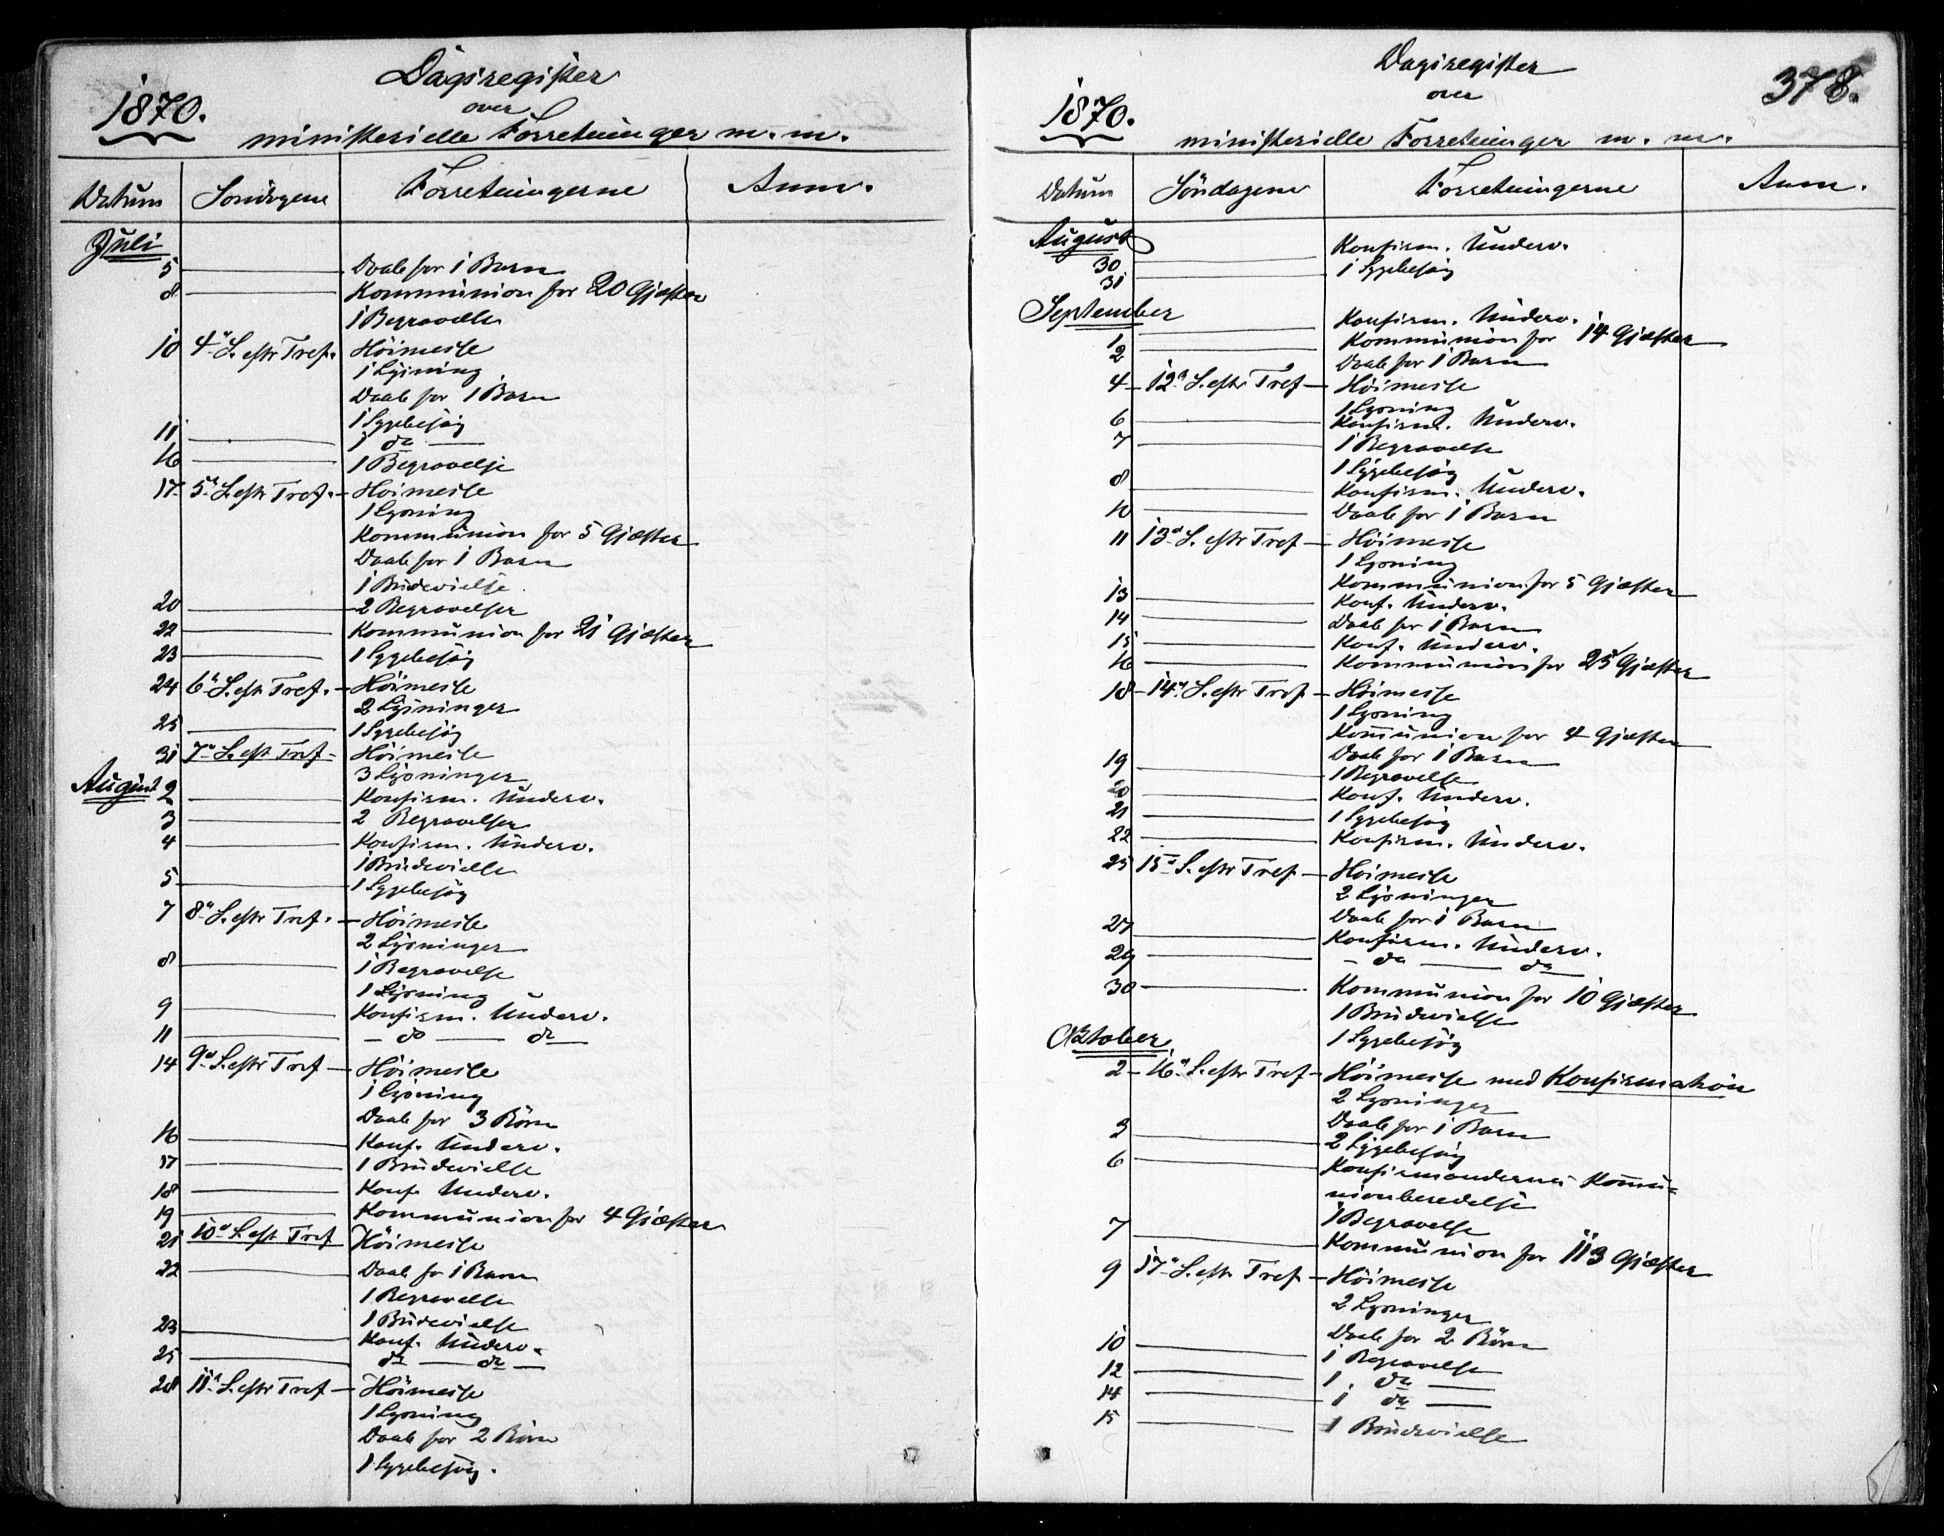 Dagsregister
1870. over
ministerielle Forretninger m. m.
Datum Søndagene Forretningerne Anm.
Juli
5 Daab for 1 Barn
8 Kommunion for 20 Gjæster
1 Begravelse
10 4de S. eftr Tref. Höimesse
1 Lysning
Daab for 1 Barn
1 Sygebesög
11 1 do
16 1 Begravelse
17 5te S. eftr Tref. Höimesse
1 Lysning
Kommunion for 5 Gjæster
Daab for 1 Barn
1 Brudevielse
20 2 Begravelser
22 Kommunion for 21 Gjæster
23 1 Sygebesög
24 6te S. eftr Tref. Höimesse
2 Lysninger
25 1 Sygebesög
31 7de S. eft Tref Höimesse
3 Lysninger
August 2 Konfirm. Underv.
3 2 Begravelser
4 Konfirm. Underv.
1 Brudevielse
5 1 Sygebesög
7 8de S. eftr Tref. Höimesse
2 Lysninger
8 1 Begravelse
1 Lysning
9 Konfirm. Underv.
11 do do
14 9de S. eftr Tref Höimesse
1 Lysning
Daab for 3 Börn
16 Konf. Underv.
17 1 Brudevielse
18 Konf. Underv.
19 Kommunion for 4 Gjæster
21 10de S. eft Tref Höimesse
22 Daab for 1 Barn
1 Begravelse
1 Brudevielse
23 Konf. Underv.
25 do do
28 11te S. eftr Tref Höimesse
1 Lysning
Daab for 2 Börn
1 Sygebesög.
Dagsregister 378.
1870. over
ministerielle Forretninger m. m.
Datum Söndagene Forretningerne Anm.
August
30 Konfirm. Underv.
31 1 Sygebesög
September
1 Konfirm. Underv.
2 Kommunion for 14 Gjæster
Daab for 1 Barn
4 12te S. eftr Tref Höimesse
1 Lysning
6 Konfirm. Underv.
7 1 Begravelse
1 Sygebesög
8 Konfirm. Underv.
10 Daab for 1 Barn
11 13de S. eftr Tref Höimesse
1 Lysning
Kommunion for 5 Gjæster
13 Konf. Underv.
14 Daab for 1 Barn
15 Konf. Underv.
16 Kommunion for 25 Gjæster
18 14de S. eftr Tref Höimesse
1 Lysning
Kommunion for 4 Gjæster
Daab for 1 Barn
19 1 Begravelse
20 Konf. Underv.
21 1 Sygebesög
22 Konfirm. Underv.
25 15de S. eftr Tref Höimesse
2 Lysninger
Daab for 1 Barn
27 Konfirm. Underv.
29 do do
30 Kommunion for 10 Gjæster
1 Brudevielse
1 Sygebesög
Oktober
2 16de S. eftr Tref Höimesse med Konfirmation
2 Lysninger
Daab for 1 Barn
3 2 Sygebesög
6 Konfirmandernes Kommu=
nionberedelse
1 Begravelse
7 Kommunion for 113 Gjæster
9 17de S. eftr Tref Höimesse
2 Lysninger
Daab for 2 Börn
10 1 Begravelse
12 1 do
14 1 do
15 1 Brudevielse